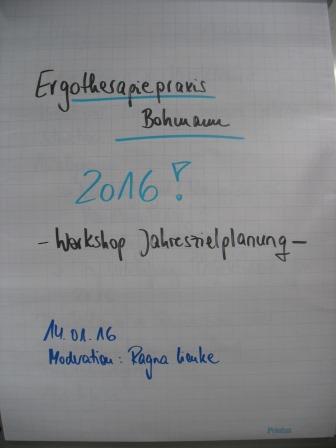 Ergotherapiepraxis
Bohmann
2016!
- Workshop Jahreszielplanung -
14.01.16
Moderation: Ragna